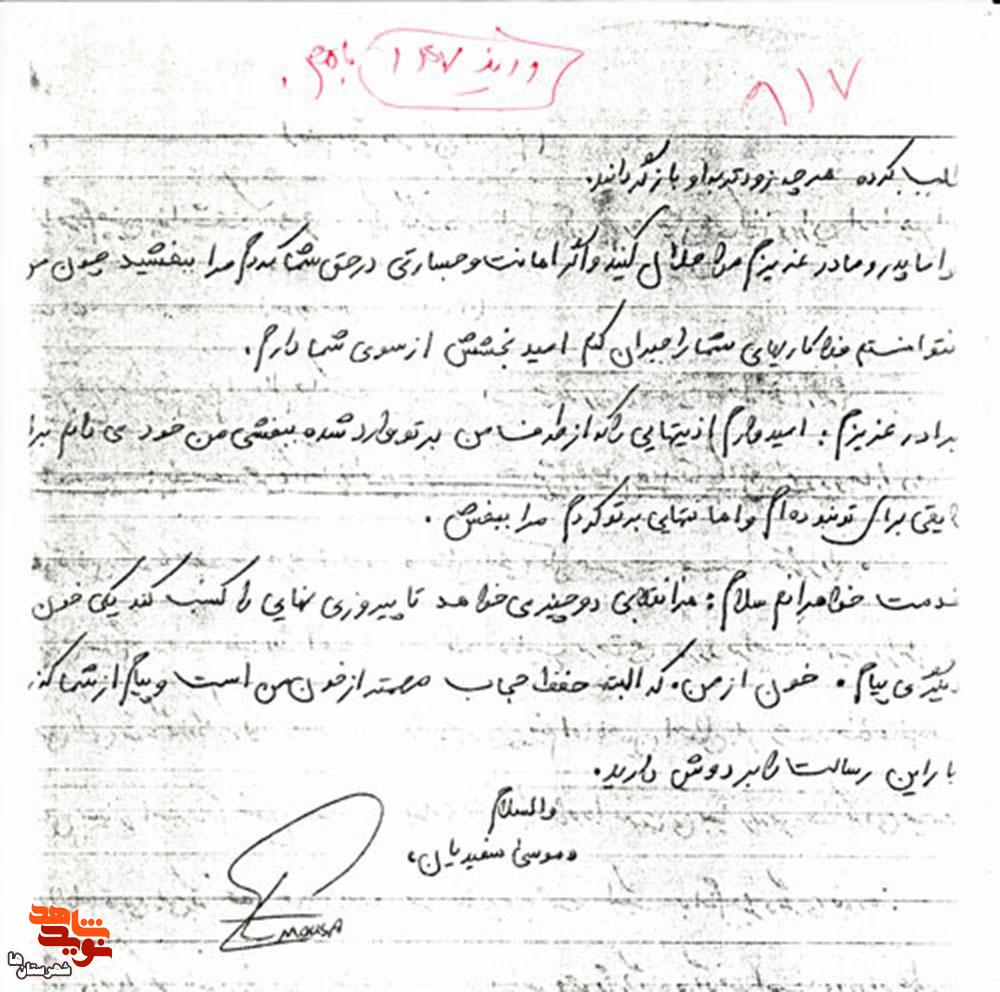 ۹۱۷
واریز ۱۴۷
طلب کرده هرچه زودتر به او بازگردانند.
و اما پدر و مادر عزیزم مرا حلال کنید و اگر اهانت و جسارتی در حق شما کردم مرا ببخشید چون من
نتوانستم فداکاریهای شما را جبران کنم امید بخشش از سوی شما دارم.
برادر عزیزم: امیدوارم اذیتهایی را که از طرف من بر تو وارد شده ببخشی من خود می دانم برادر
لایقی برای تو نبوده ام و اهانتهایی بر تو کردم مرا ببخش.
خدمت خواهرانم سلام: هر انقلابی دو چیز می خواهد تا پیروزی نهایی را کسب کند یکی خون
دیگری پیام. خون از من. که البته حفظ حجاب مهمتر از خون من است و پیام از شما که
بار این رسالت را بر دوش دارید.
والسلام
«موسی سفیدیان»
MOUSA
نوید شاهد
شهرستان‌ها